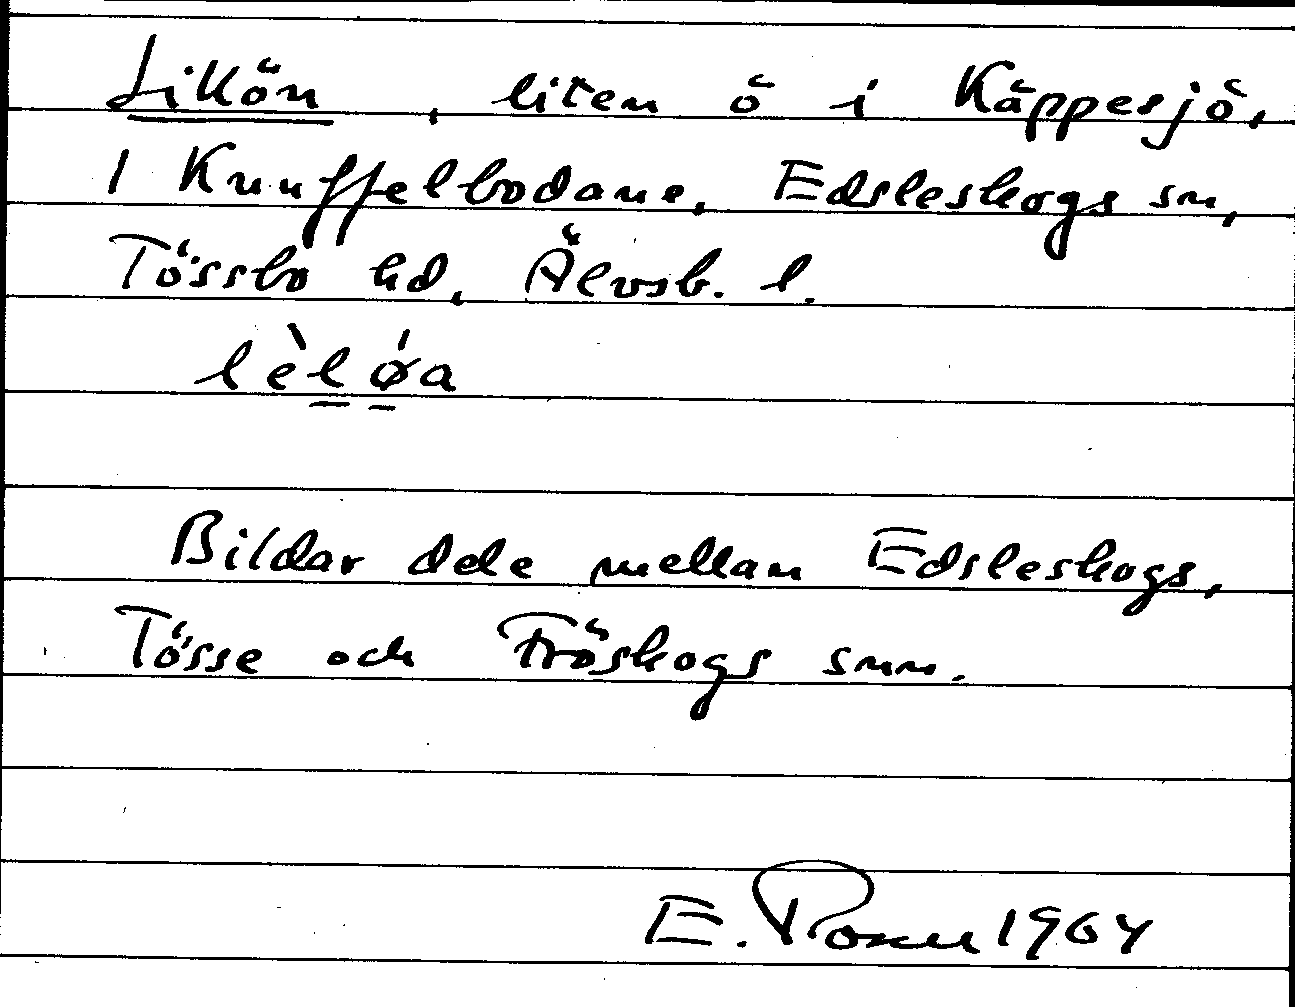 Likön, liten ö i Käppesjö,
1 Knuffelbodane, Edsleskogs sn,
Tössbo hd, Älvsb. l.
lèløa
Bildar dele mellan Edsleskogs,
Tösse och Fröskogs snm.
E. 1964